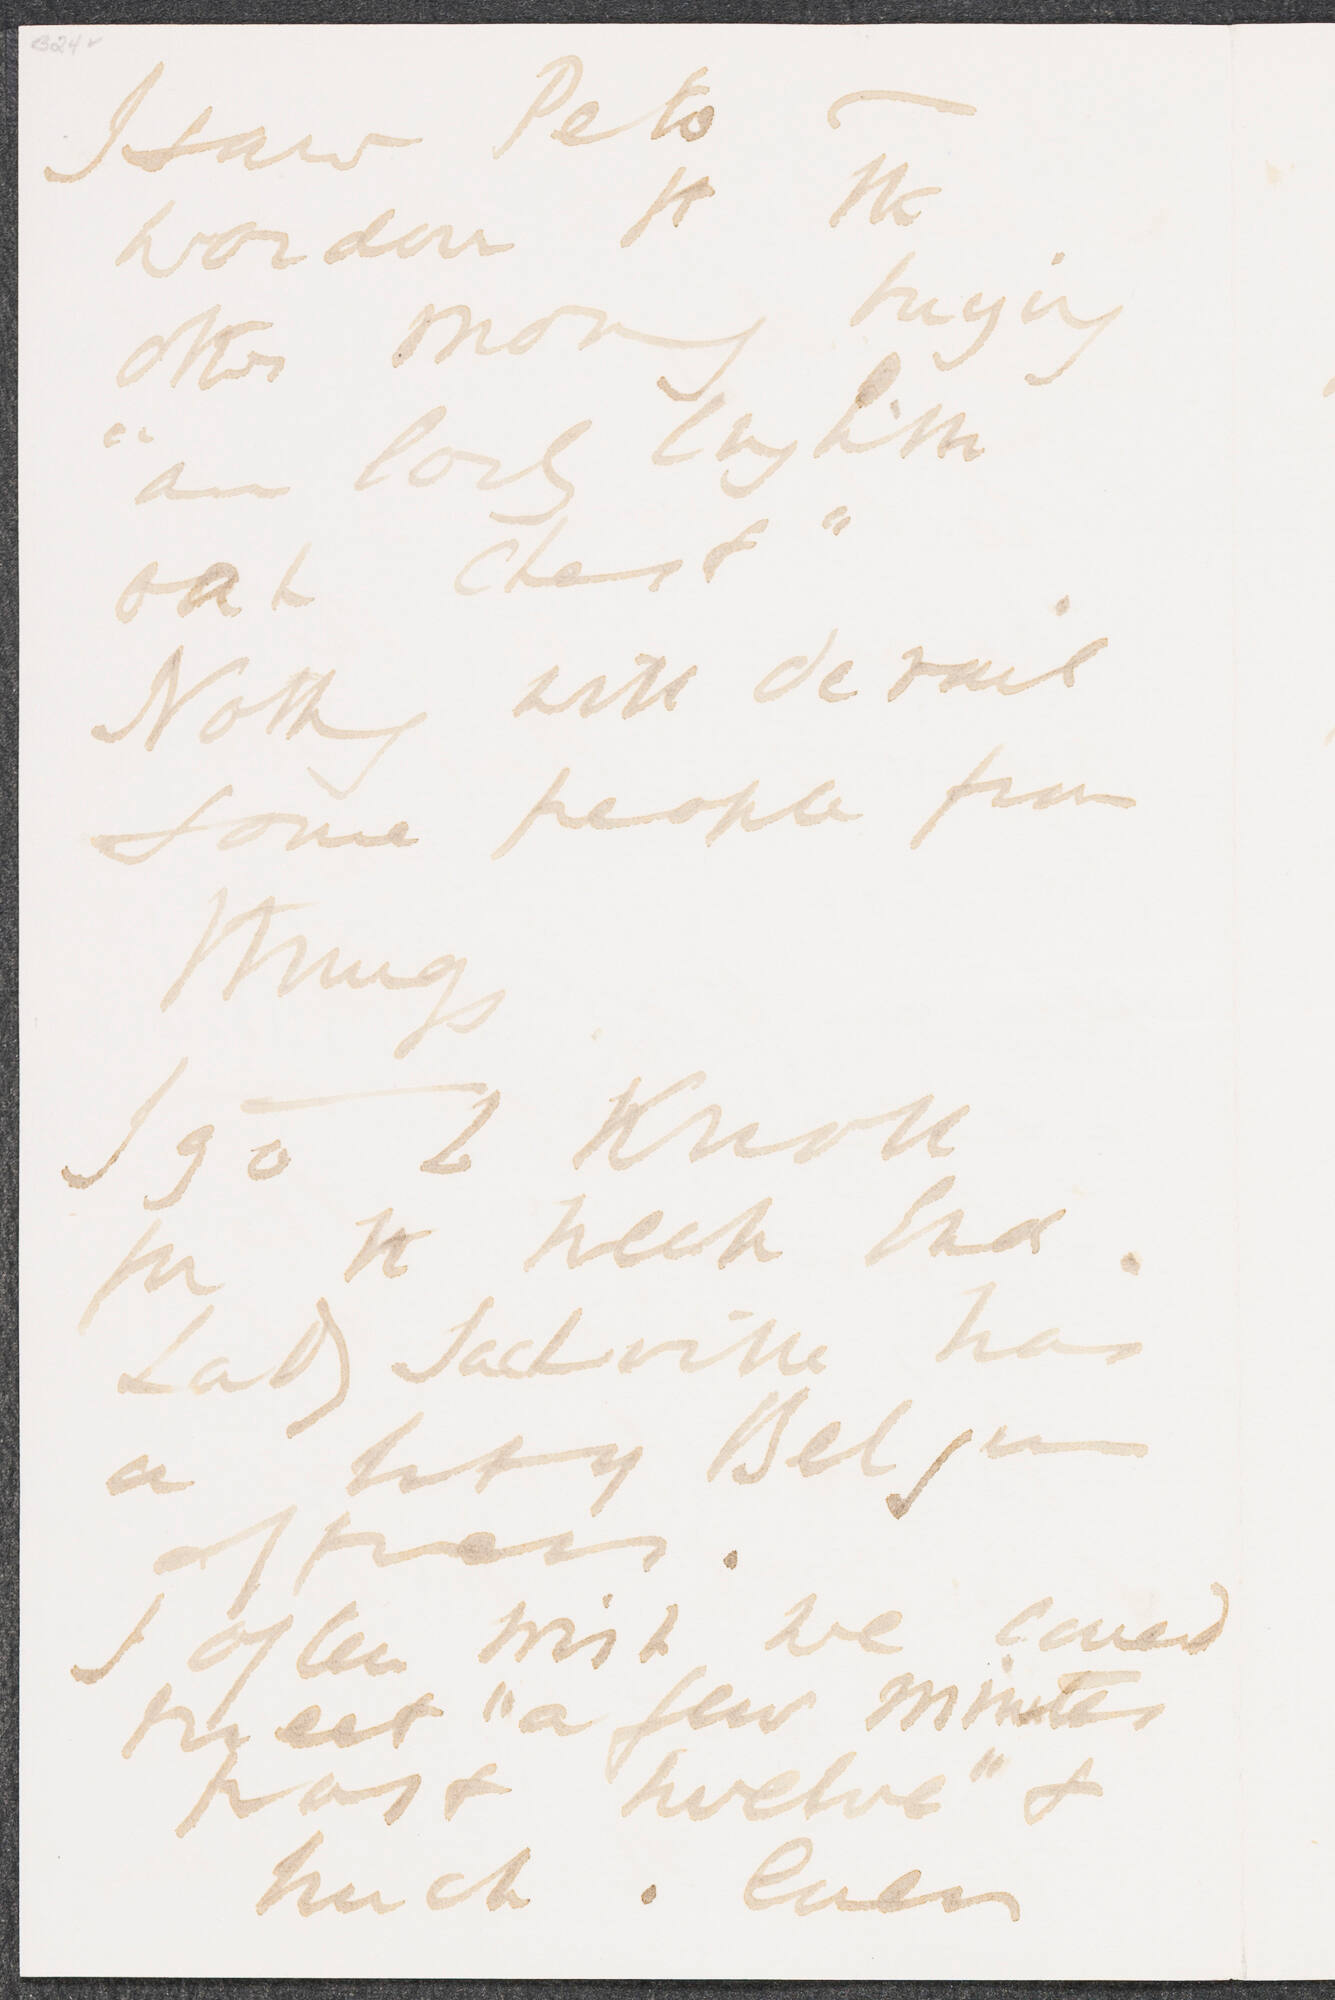 324v
I saw Peto –
the
other morng buying
"an early English
oak chest".
Nothg will derail
some people from
things
I go to Knole
for the week End.
Lady Sackville has
a Belgian
I often wish we could
meet "a few minutes
past twelve" &